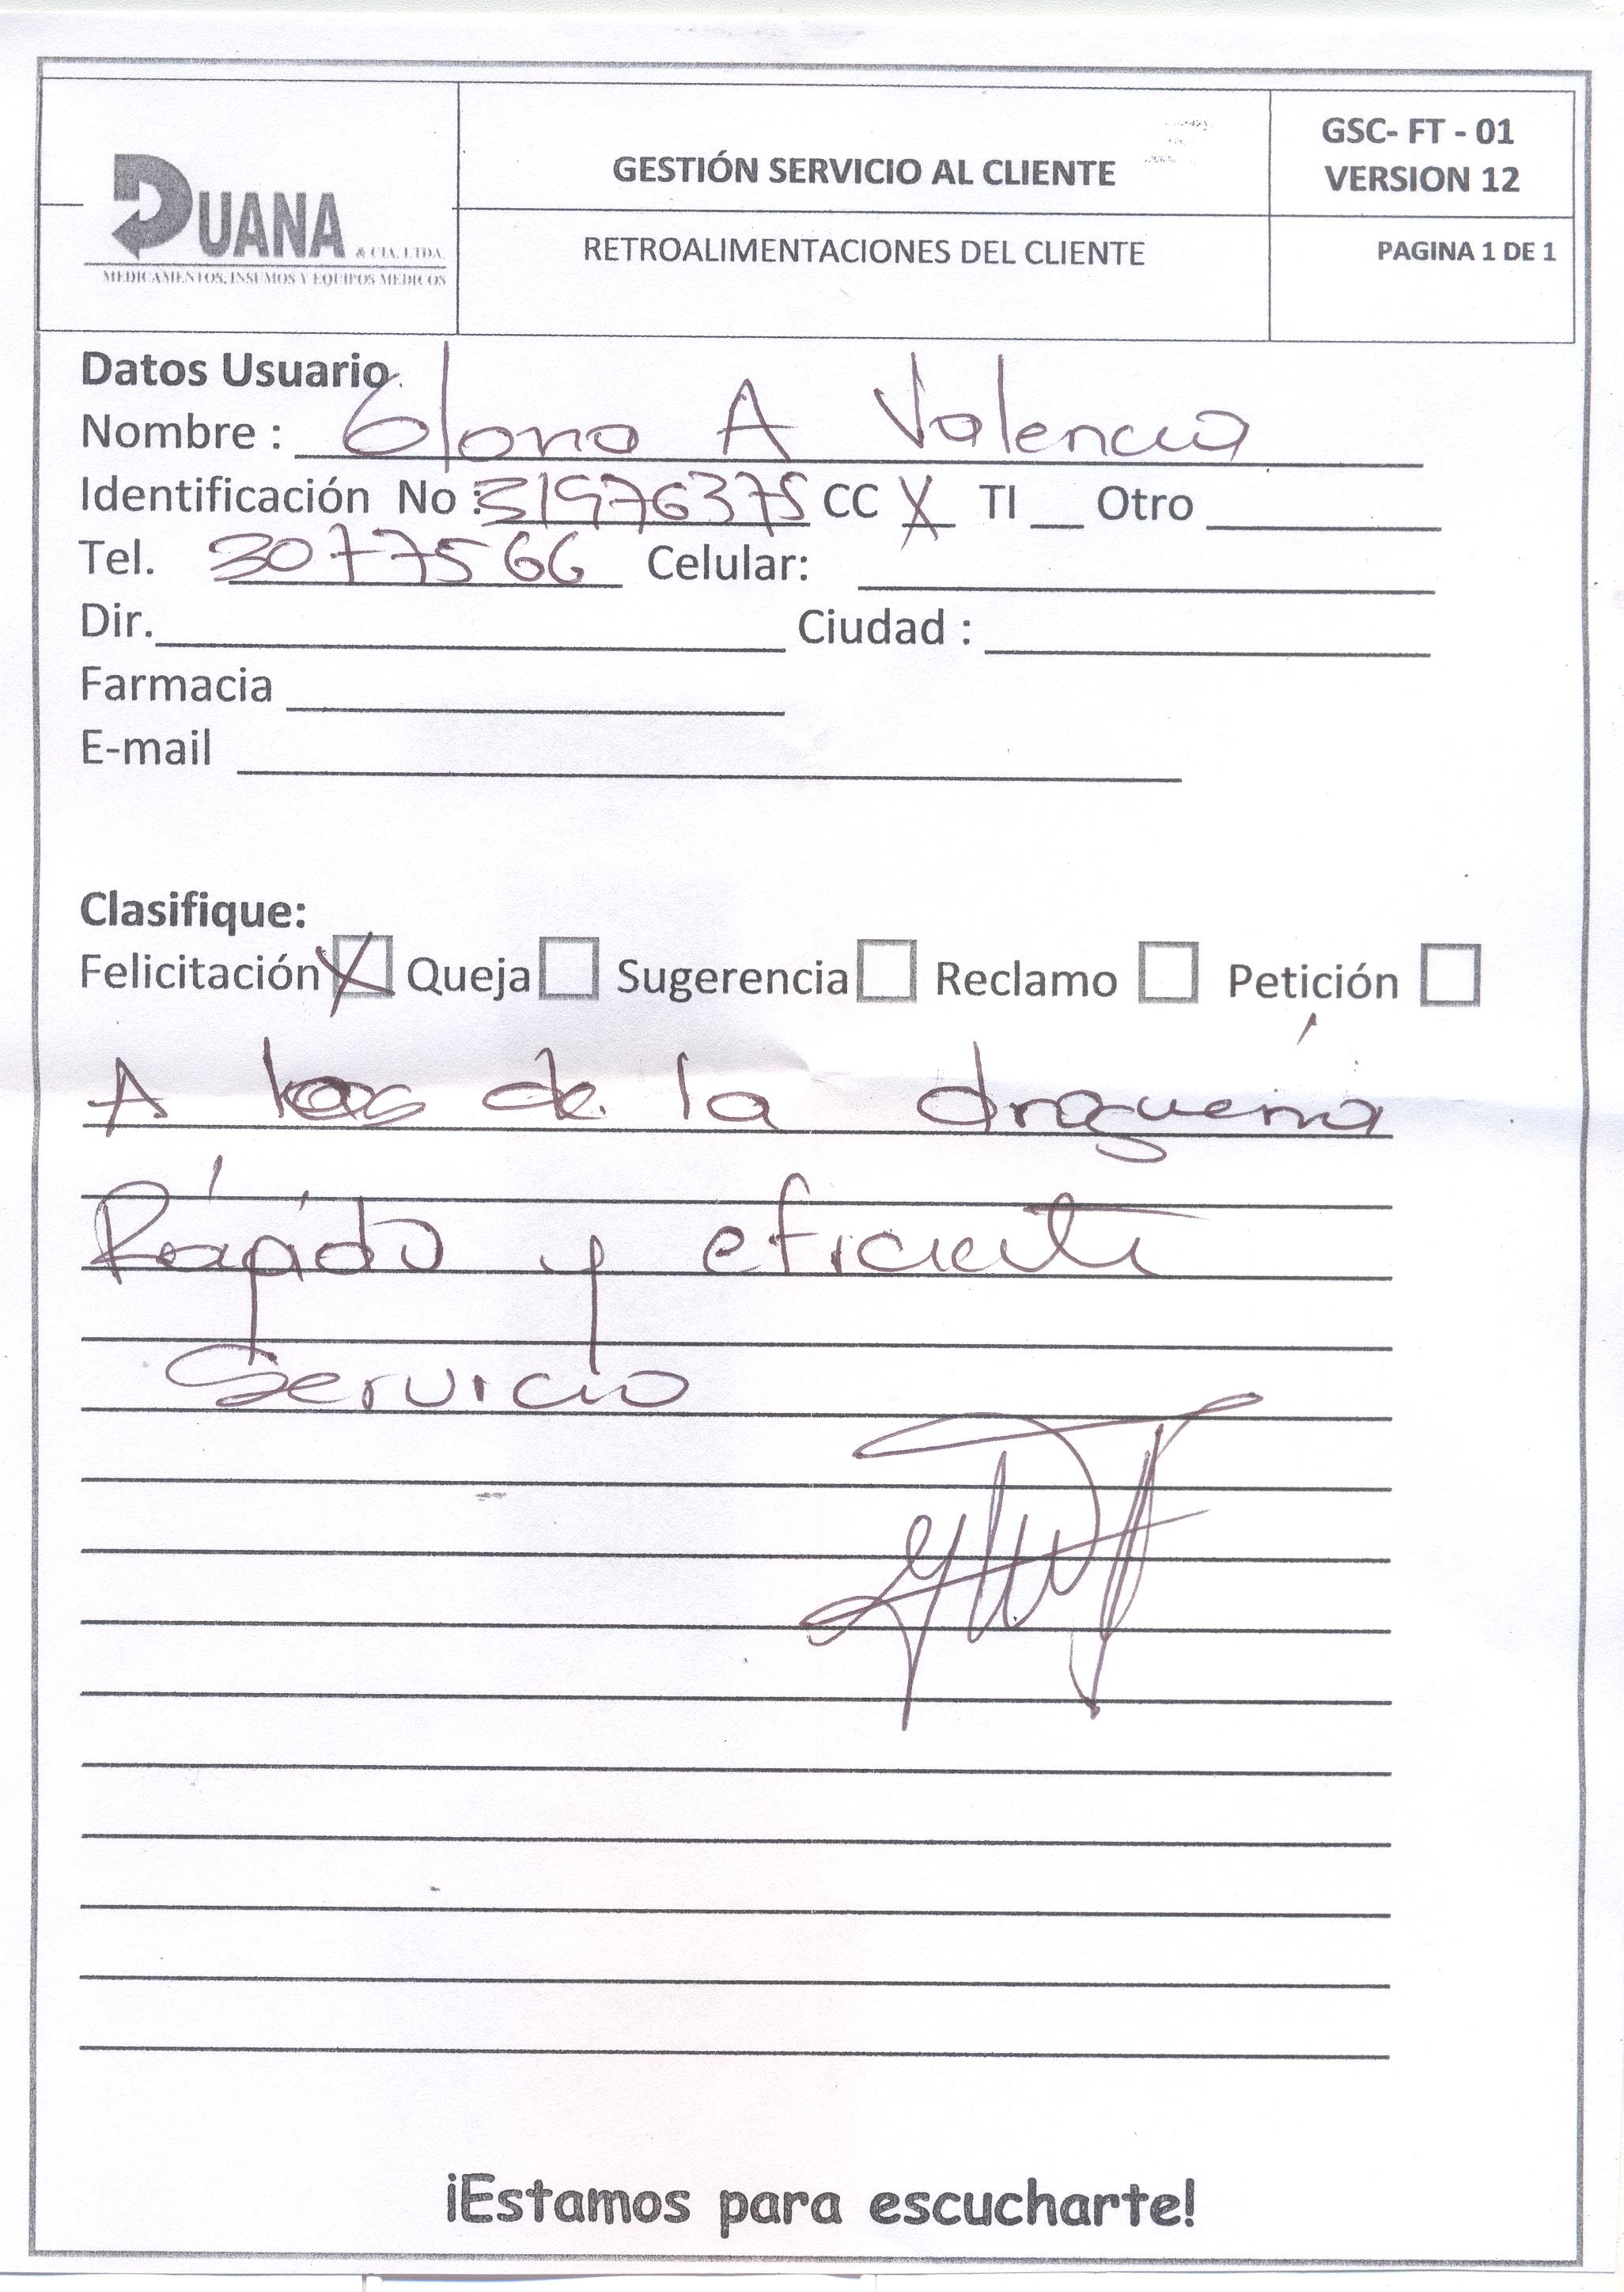 DUANA & CIA. LTDA.
MEDICAMENTOS, INSUMOS Y EQUIPOS MEDICOS
GESTIÓN SERVICIO AL CLIENTE
RETROALIMENTACIONES DEL CLIENTE
GSC- FT - 01
VERSION 12
PAGINA 1 DE 1
Datos Usuario
Nombre : Gloria A Valencia
Identificación No : 31976375 CC X TI __ Otro
Tel. 3077566 Celular:
Dir. Ciudad :
Farmacia
E-mail
Clasifique:
Felicitación X Queja Sugerencia Reclamo Petición
A los de la droguería
Rápido y eficiente
Servicio
¡Estamos para escucharte!